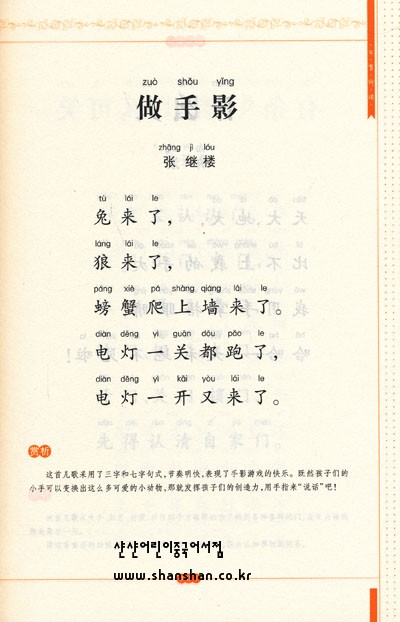 zuò shǒu yǐng
做手影
zhāng jì lóu
张继楼
tù lái le
兔来了，
láng lái le
狼来了，
páng xiè pá shàng qiáng lái le
螃蟹爬上墙来了。
diàn dēng yì guān dōu pǎo le
电灯一关都跑了，
diàn dēng yì kāi yòu lái le
电灯一开又来了。
赏析
这首儿歌采用了三字和七字句式，节奏明快，表现了手影游戏的快乐。既然孩子们的
小手可以变换出这么多可爱的小动物，那就发挥孩子们的创造力，用手指来“说话”吧！
샨샨어린이중국어서점
www.shanshan.co.kr